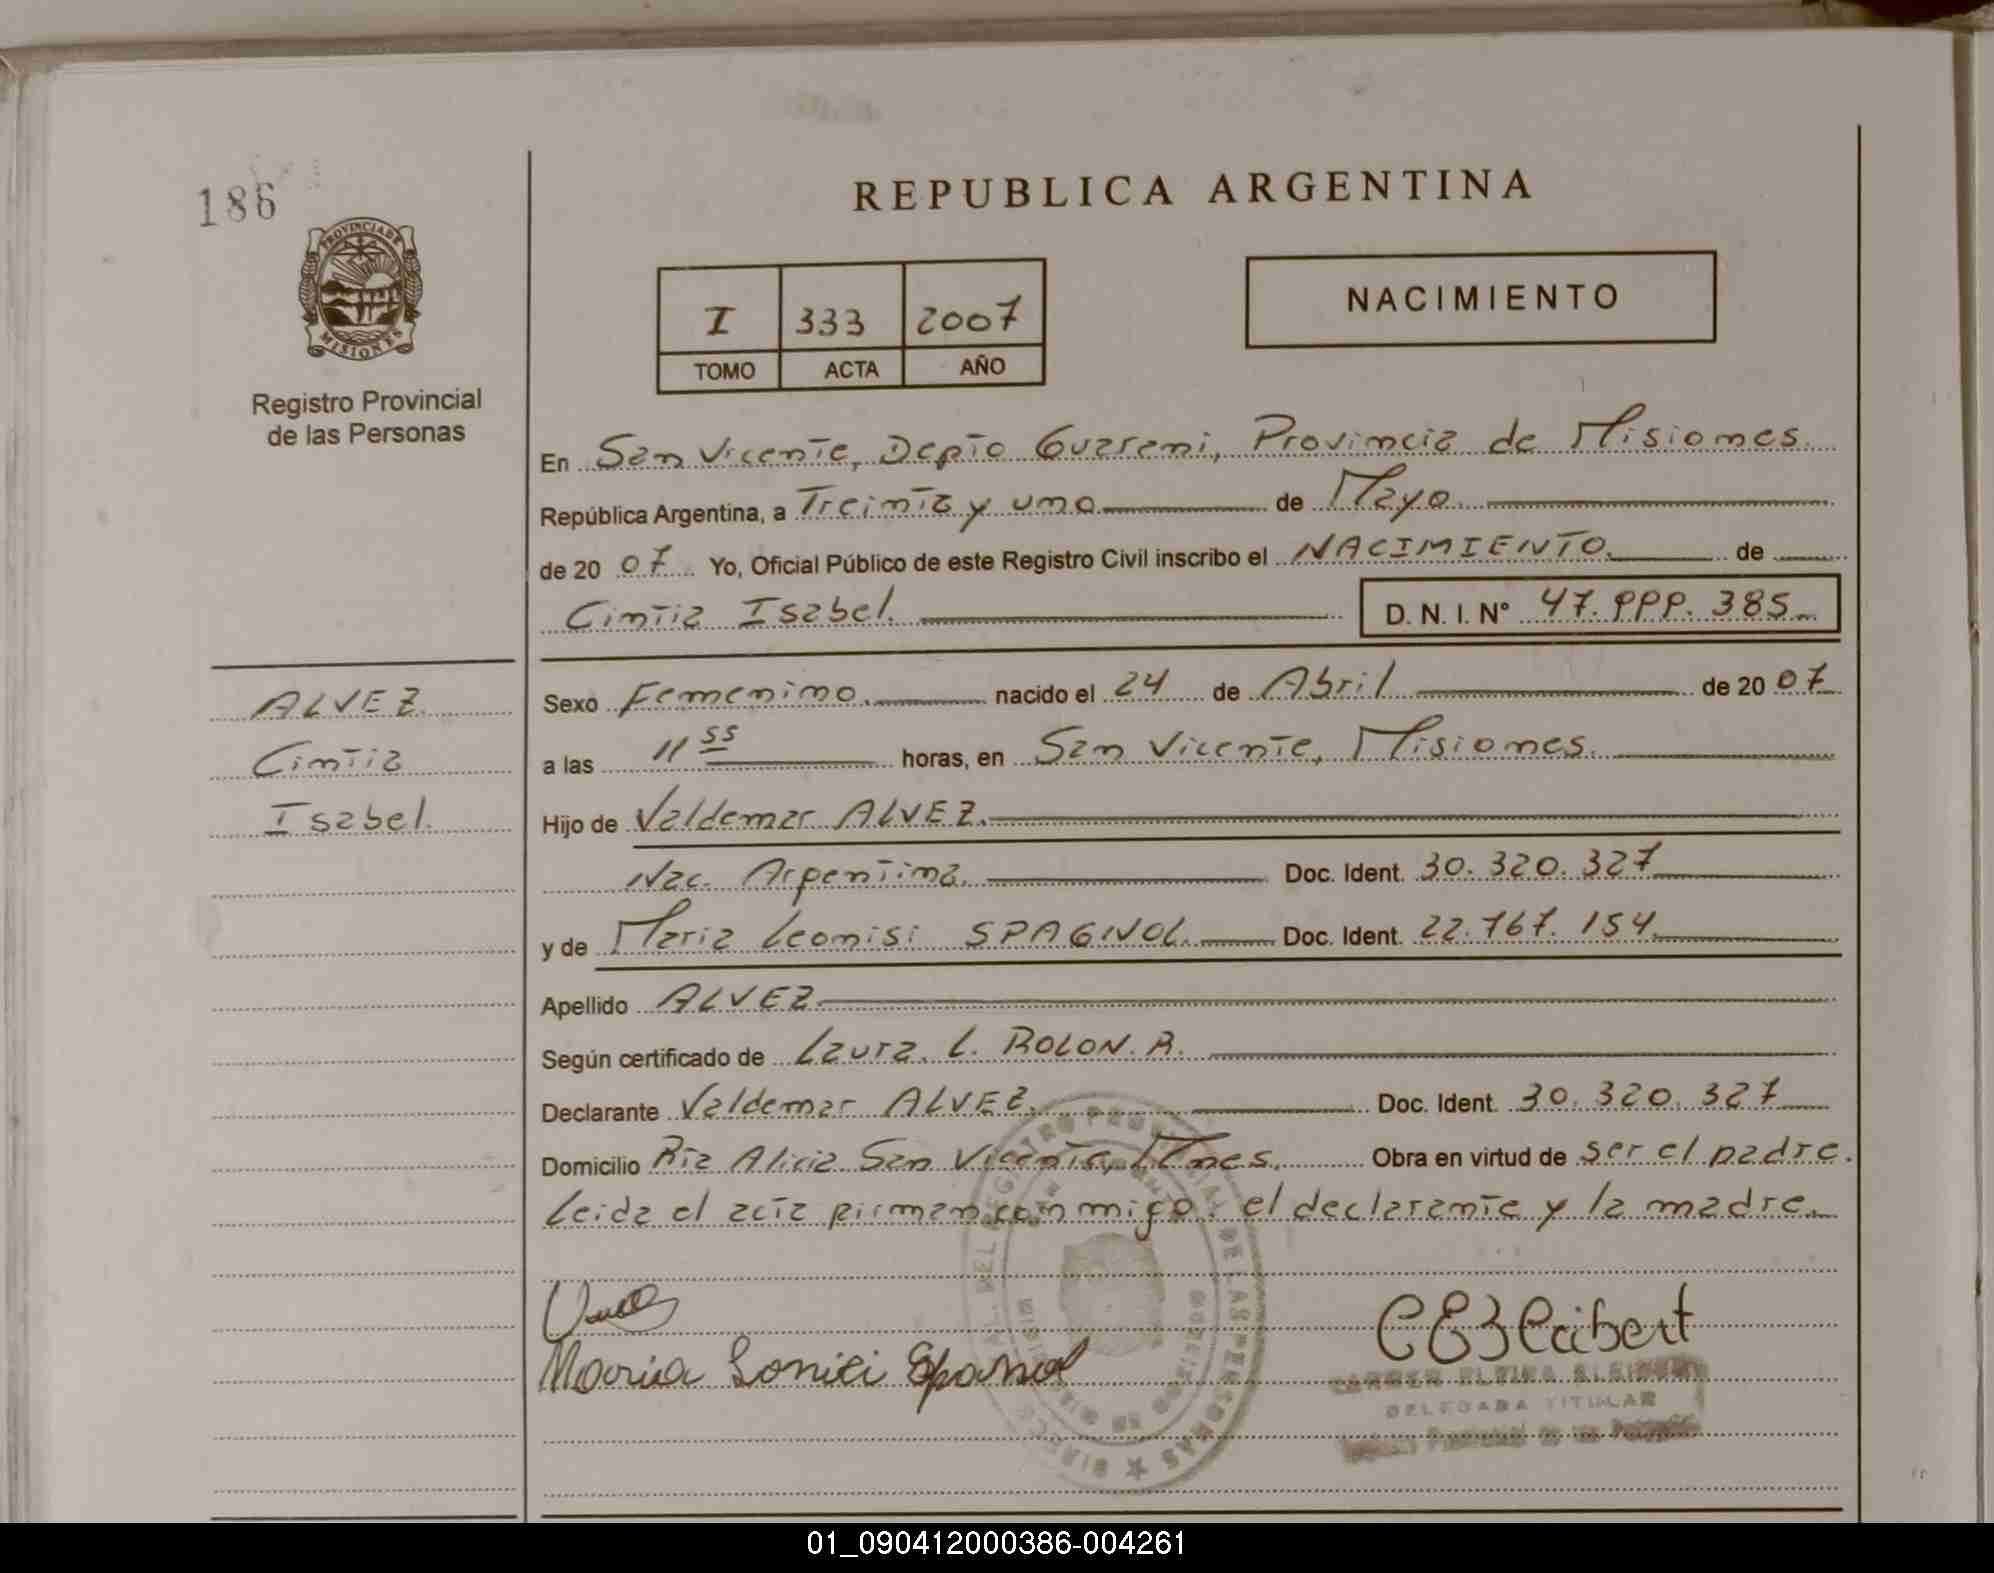 186
PROVINCIA DE
MISIONES
Registro Provincial
de las Personas
REPUBLICA ARGENTINA
I 333 2007
TOMO ACTA AÑO
NACIMIENTO
En San Vicente, Depto Guarani, Provincia de Misiones.
República Argentina, a Treinta y uno de Mayo.
de 2007 Yo, Oficial Público de este Registro Civil inscribo el NACIMIENTO. de
Cintia Isabel. D. N. I. Nº 47.999.385
ALVEZ.
Cintia
Isabel.
Sexo Femenino. nacido el 24 de Abril de 2007
a las 11 55 horas, en San Vicente, Misiones.
Hijo de Valdemar ALVEZ.
Nac. Argentina. Doc. Ident. 30.320.327
y de Maria Leonisi SPAGNOL. Doc. Ident. 22.767.154.
Apellido ALVEZ
Según certificado de Laura. L. ROLON. R.
Declarante Valdemar ALVEZ. Doc. Ident. 30.320.327
Domicilio Pia Alicia San Vicente, Mnes. Obra en virtud de ser el padre.
Leida el acta firman conmigo: el declarante y la madre.
Maria
DELEGADA TITULAR
01_090412000386-004261